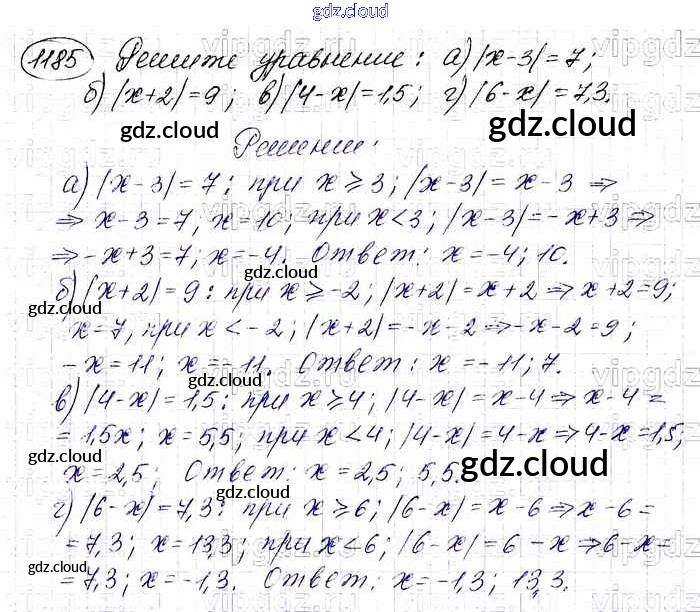 gdz.cloud
1185 Решите уравнение: а) |x-3|=7;
б) |x+2|=9; в) |4-x|=1,5; г) |6-x|=7,3.
gdz.cloud gdz.cloud
Решение:
а) |x-3|=7: при x≥3; |x-3|=x-3 ⇒
⇒ x-3=7, x=10; при x<3; |x-3|=-x+3 ⇒
⇒ -x+3=7; x=-4. Ответ: x=-4; 10.
gdz.cloud
б) |x+2|=9: при x≥-2; |x+2|=x+2 ⇒ x+2=9;
gdz.cloud gdz.cloud
x=7, при x<-2; |x+2|=-x-2 ⇒ -x-2=9;
-x=11; x=-11. Ответ: x=-11; 7.
gdz.cloud
в) |4-x|=1,5: при x≥4; |4-x|=x-4 ⇒ x-4=
=1,5x; x=5,5; при x<4; |4-x|=4-x ⇒ 4-x=1,5;
gdz.cloud gdz.cloud
x=2,5; Ответ: x=2,5; 5,5.
gdz.cloud
г) |6-x|=7,3: при x≥6; |6-x|=x-6 ⇒ x-6=
=7,3; x=13,3; при x<6; |6-x|=6-x ⇒ 6-x=
gdz.cloud gdz.cloud
=7,3; x=-1,3. Ответ: x=-1,3; 13,3.